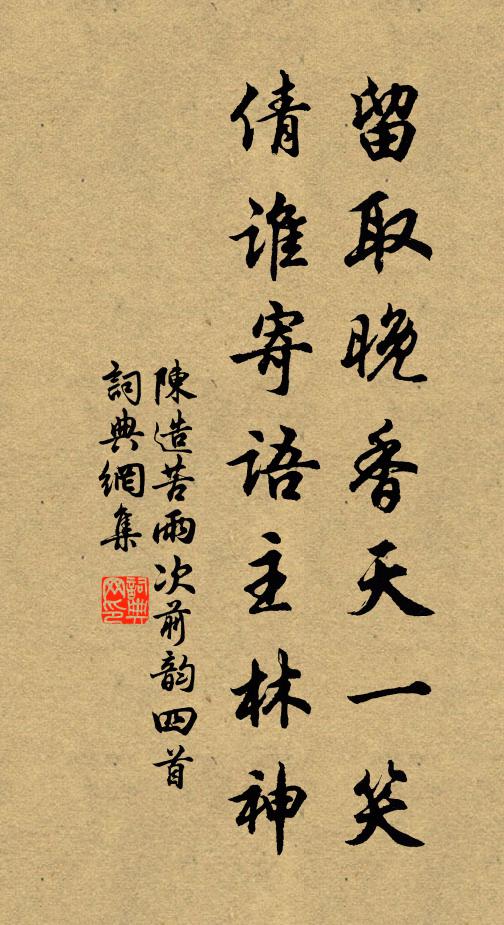 留取晚香天一笑
倩誰寄語主林神
陳造苦雨次前韵四首
詞典網集
詞典網印